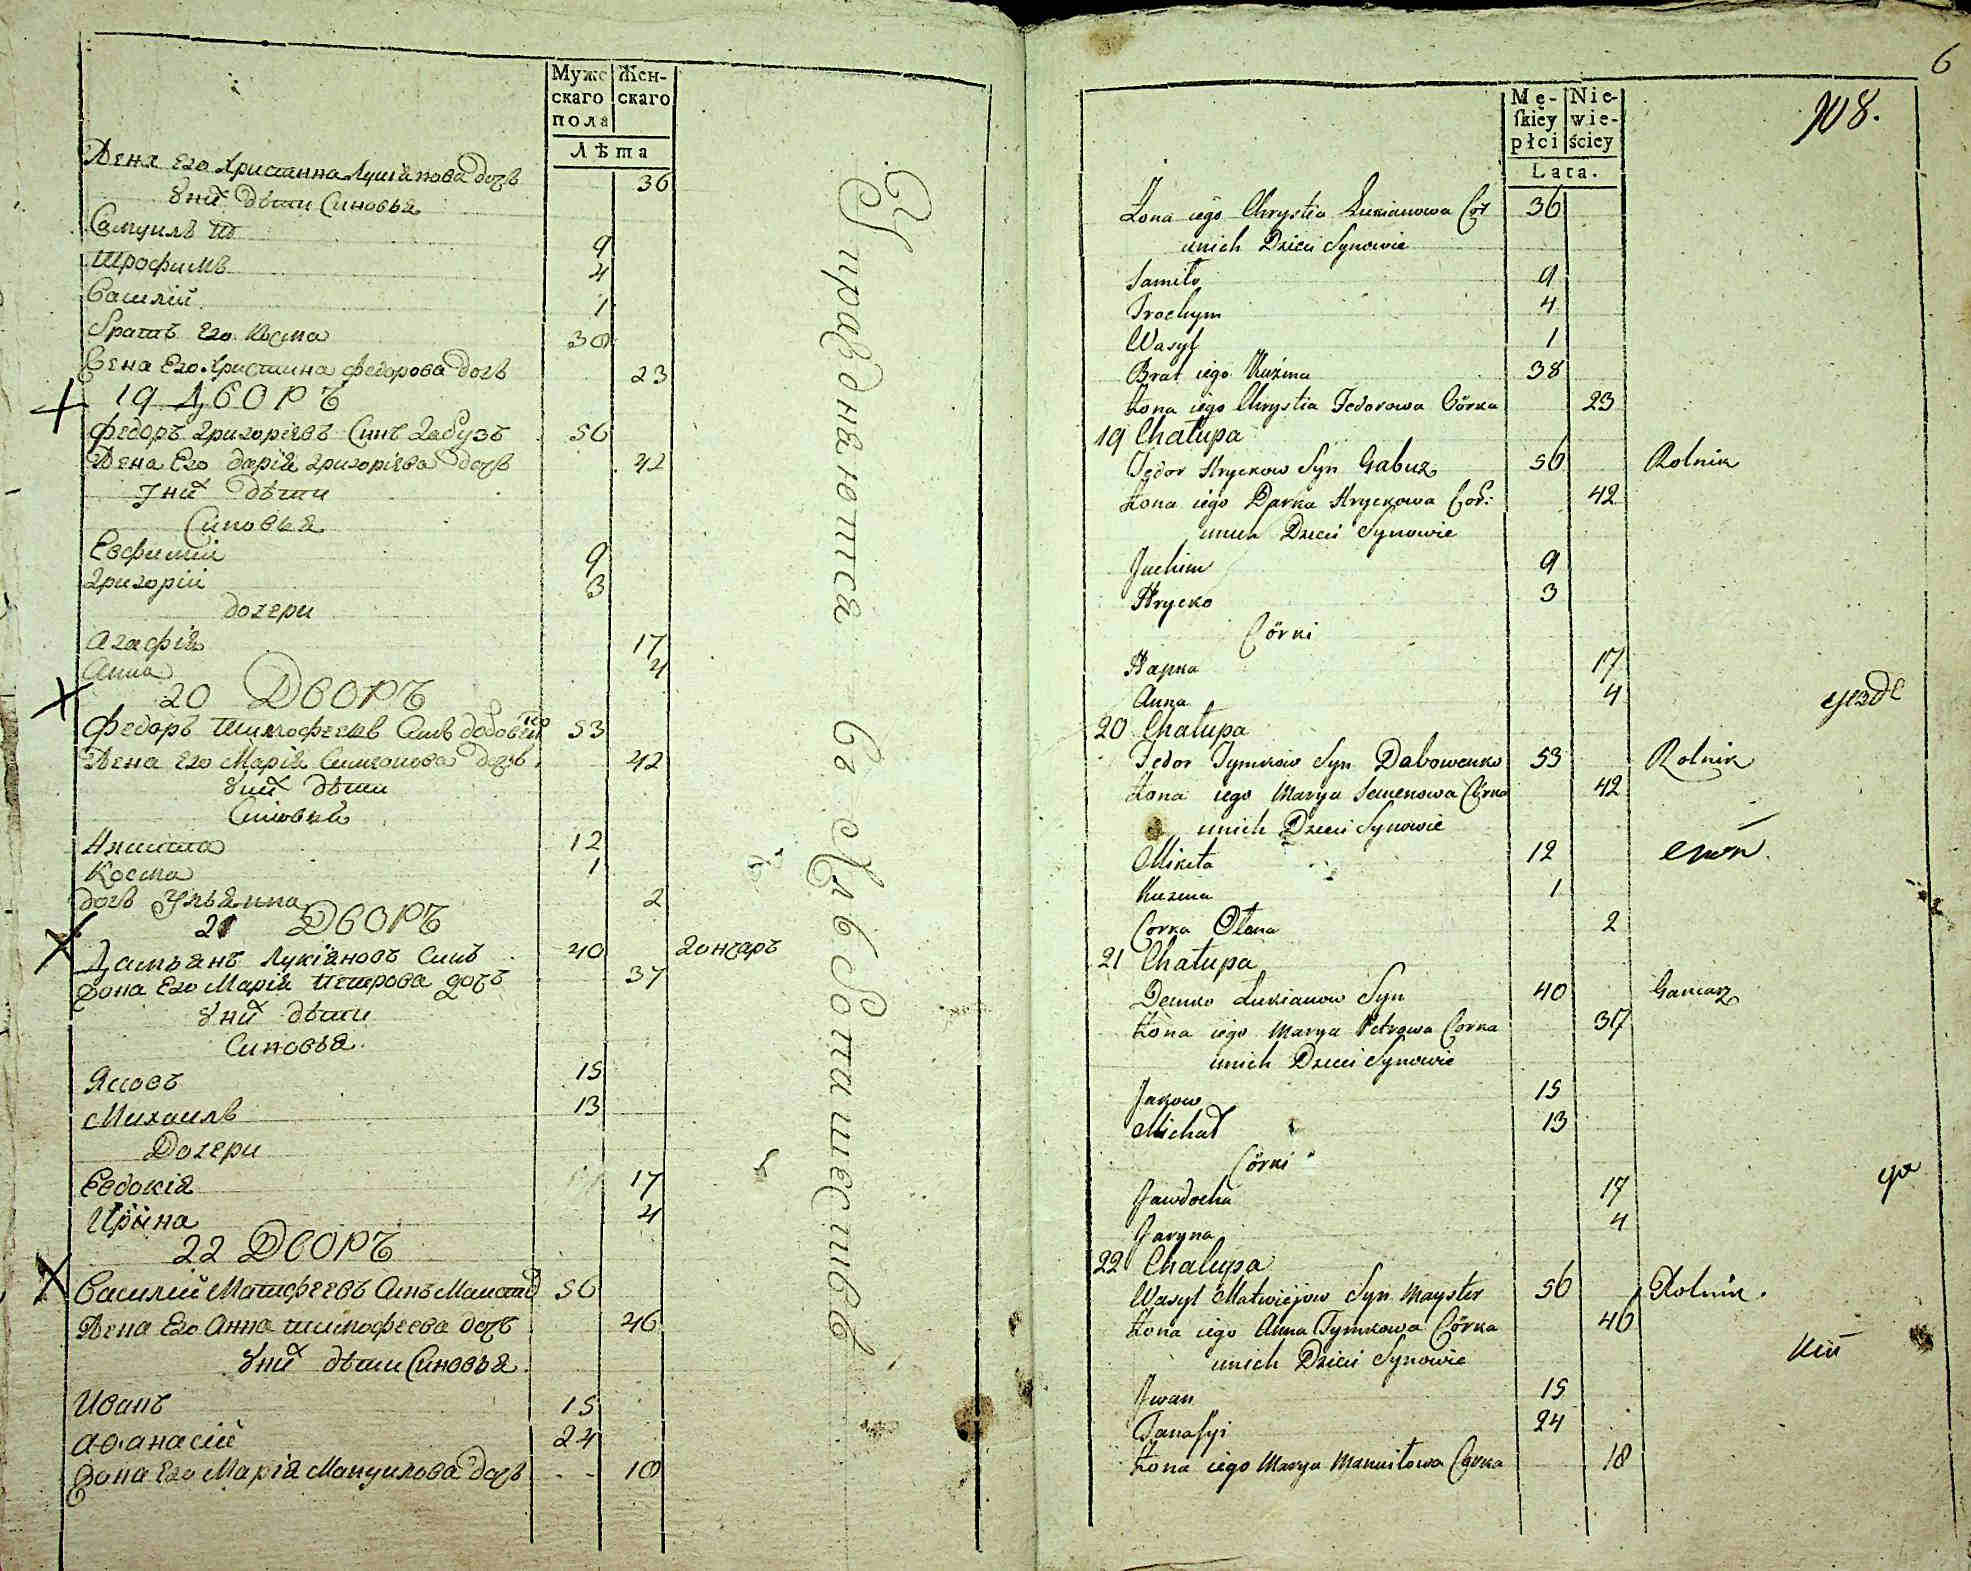 Муже
скаго
пола
Жен-
скаго
Лѣта
Жена Его Христинна Лукіанова дочь 36
У них Дѣти Синовья
Самуилъ 9
Трофимъ 4
Василій 1
Братъ Его Косма 38
Жена Его Христина Федорова дочь 23
19 ДВОРЪ
Федоръ Григоріевъ Синъ Габузъ 56
Жена Его Дарія Григоріева дочь 42
У них Дѣти
Синовья
Евфимій 9
Григорій 3
дочери
Агафія 17
Анна 4
20 ДВОРЪ
Федоръ Тимофеевъ Синъ 53
Жена Его Марія Симеонова дочь 42
У них Дѣти
Синовья
Никита 12
Косма 1
дочь Ульянна 2
21 ДВОРЪ
Дамьянъ Лукіановъ Синъ 40 Гончаръ
Жона Его Марія Петрова дочь 37
У них дѣти
Синовья
Яковъ 15
Михаилъ 13
Дочери
Евдокія 17
Ирина 4
22 ДВОРЪ
Василій Матфеевъ Синъ 56
Жена Его Анна Тимофеева дочь 46
У них дѣти Синовья
Иванъ 15
Афанасій 24
Жона Его Марія Мануилова дочь - - 18
Упражняется въ Хлѣбопашествѣ
6
Mę-
skiey
płci
Nie-
wie-
ściey
Lata.
708.
Żona iego Chrystia Łukianowa Cór 36
unich Dzieci Synowie
Samiło 9
Trochym 4
Wasyl 1
Brat iego Kuźma 38
Żona iego Chrystia Fedorowa Córka 23
19 Chałupa
Fedor Hryckow Syn Gabuz 56 Rolnik
Żona iego Darka Hryckowa Cór: 42
unich Dzieci Synowie
Juchim 9
Hrycko 3
Córki
Hapka 17
Anna 4
20 Chałupa
Fedor Tymkow Syn Dabowenko 53 Rolnik
Żona iego Marya Semenowa Córka 42
unich Dzieci Synowie
Mikita 12
Kuzma 1
Corka Olana 2
21 Chałupa
Demko Łukianow Syn 40 Garncarz
Żona iego Marya Petrowa Corka 37
unich Dzieci Synowie
Jakow 15
Michał 13
Córki
Jawdocha 17
Jaryna 4
22 Chałupa
Wasyl Matwiejow Syn Mayster 56 Rolnik.
Żona iego Anna Tymkowa Córka 46
unich Dzieci Synowie
Jwan 15
Panasyi 24
Żona iego Marya Manuiłowa Corka 18